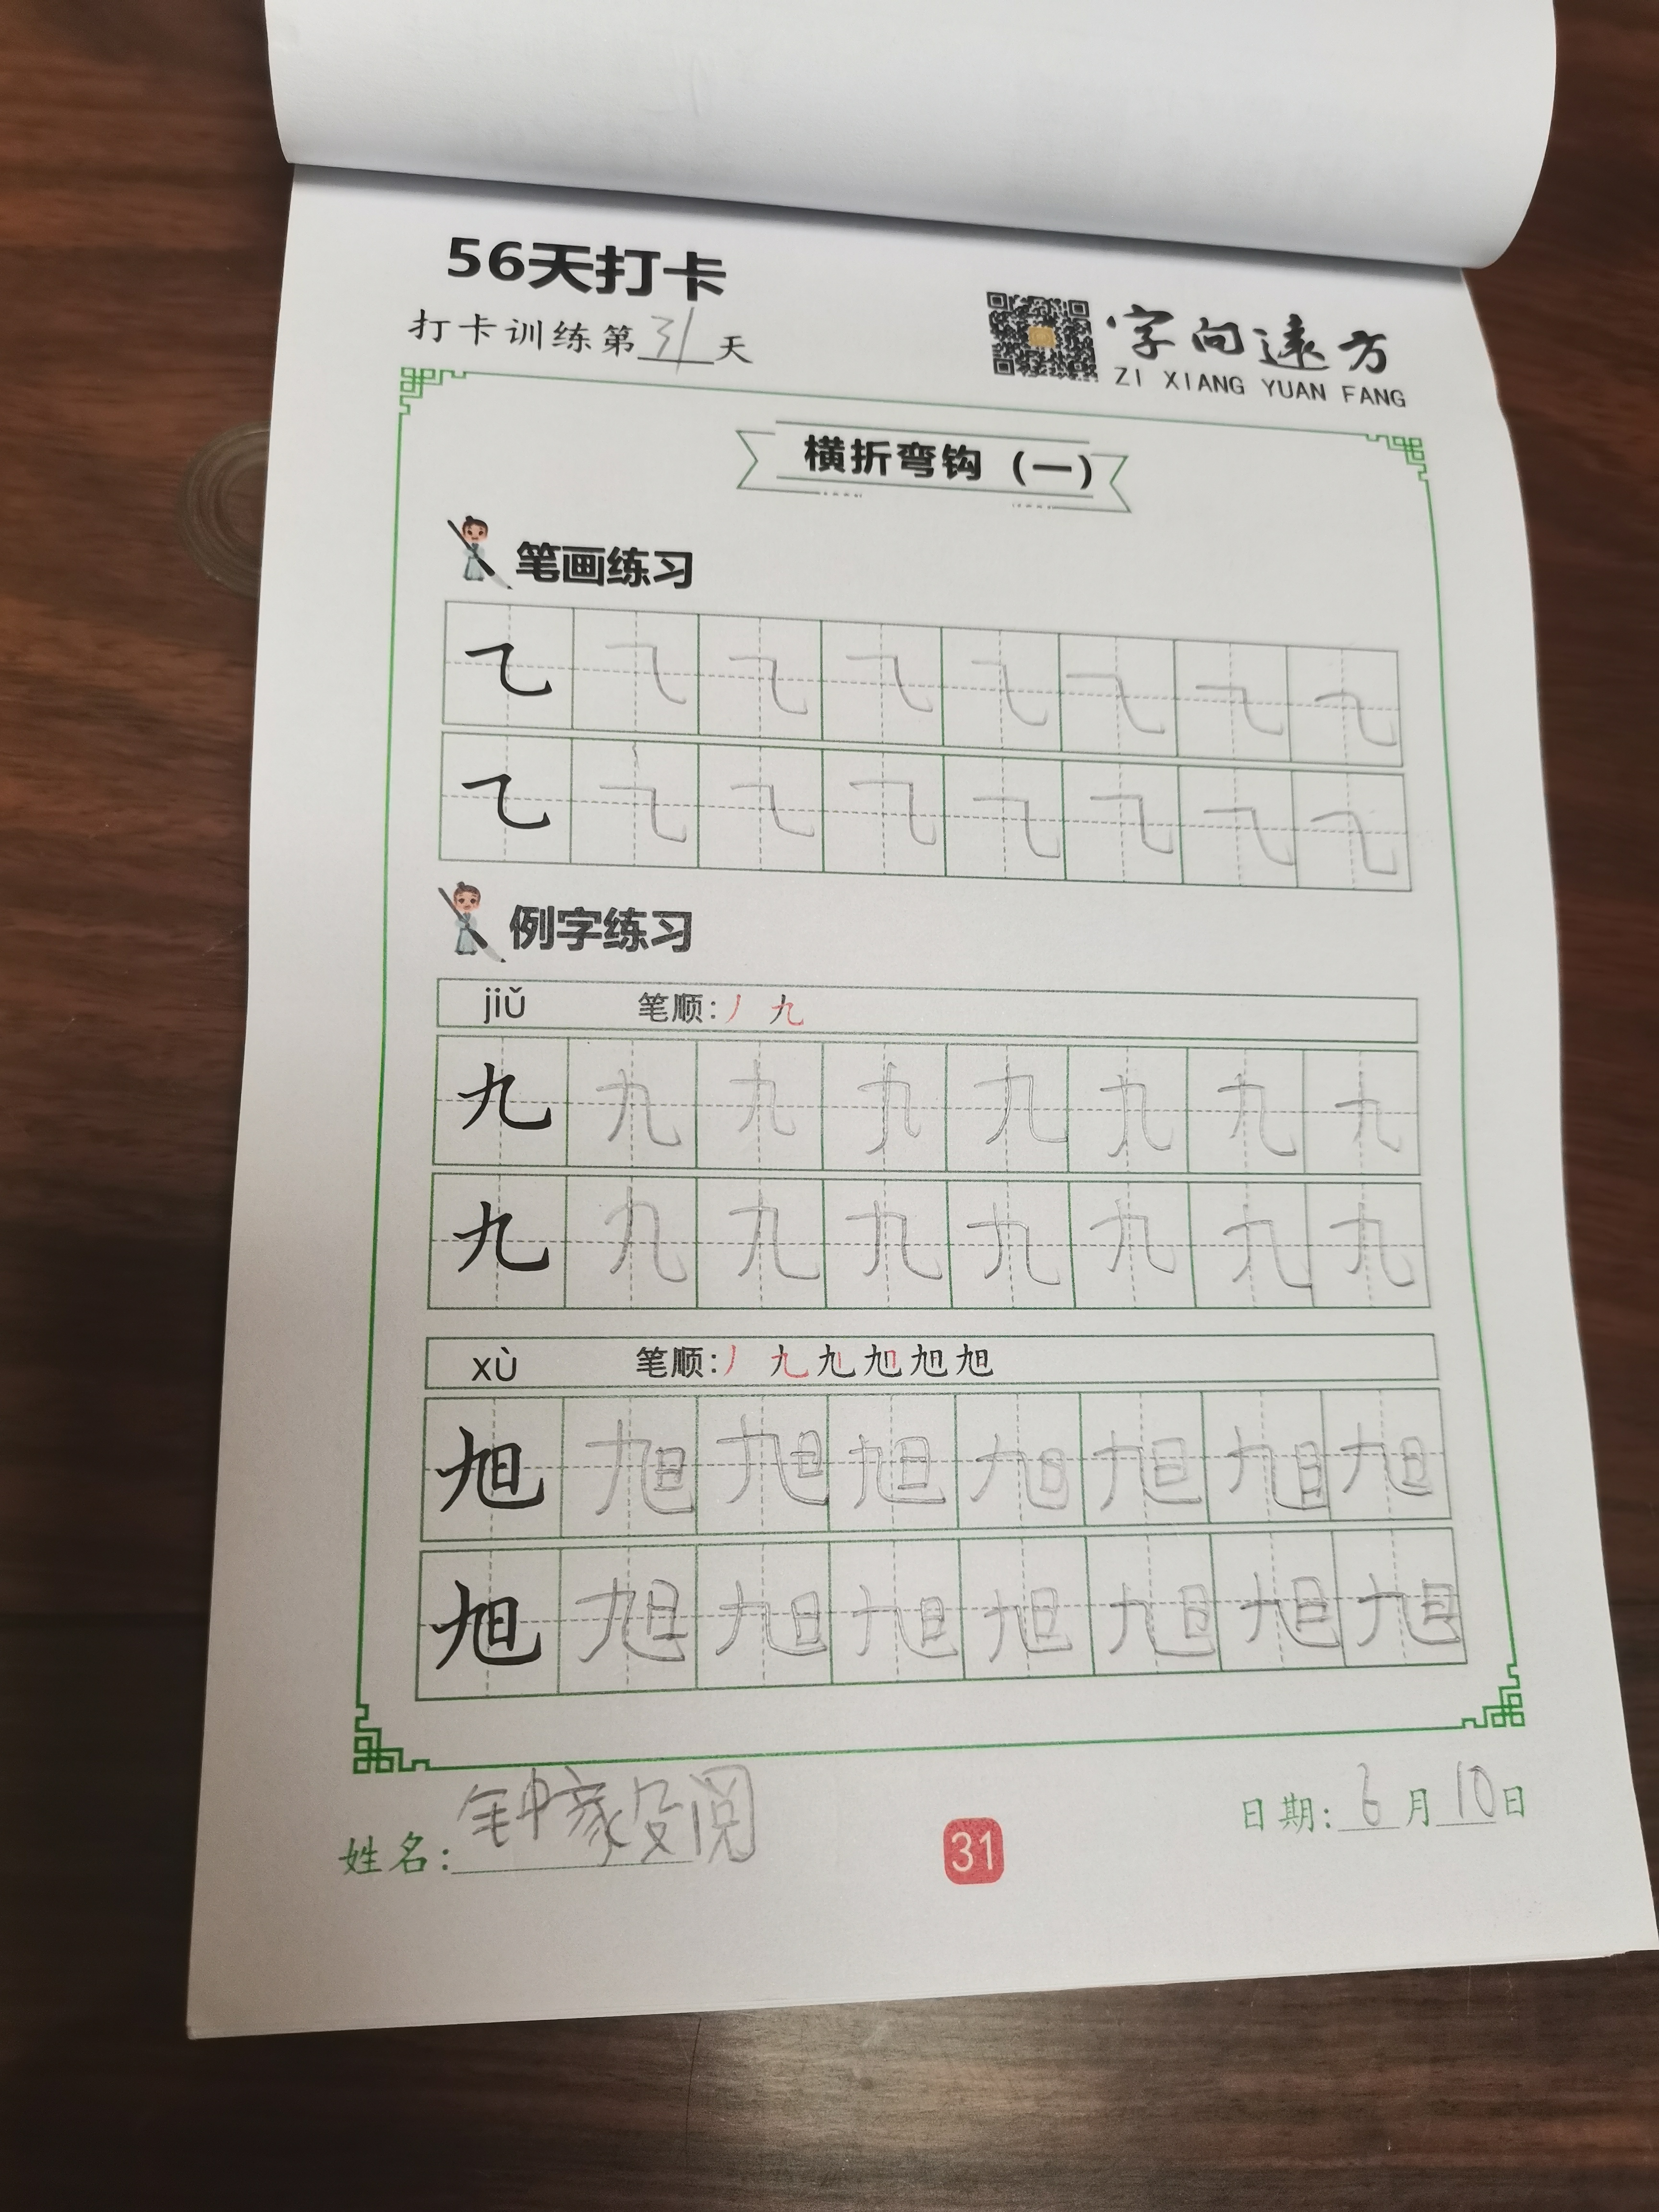 56天打卡
打卡训练第31天
字向遠方
ZI XIANG YUAN FANG
横折弯钩（一）
笔画练习
㇈ ㇈ ㇈ ㇈ ㇈ ㇈ ㇈ ㇈
㇈ ㇈ ㇈ ㇈ ㇈ ㇈ ㇈ ㇈
例字练习
jiǔ 笔顺:丿 九
九 九 九 九 九 九 九 九
九 九 九 九 九 九 九 九
xù 笔顺:丿 九 旭 旭 旭 旭
旭 旭 旭 旭 旭 旭 旭 旭
旭 旭 旭 旭 旭 旭 旭 旭
姓名: 钟家 阅
31
日期: 6月10日